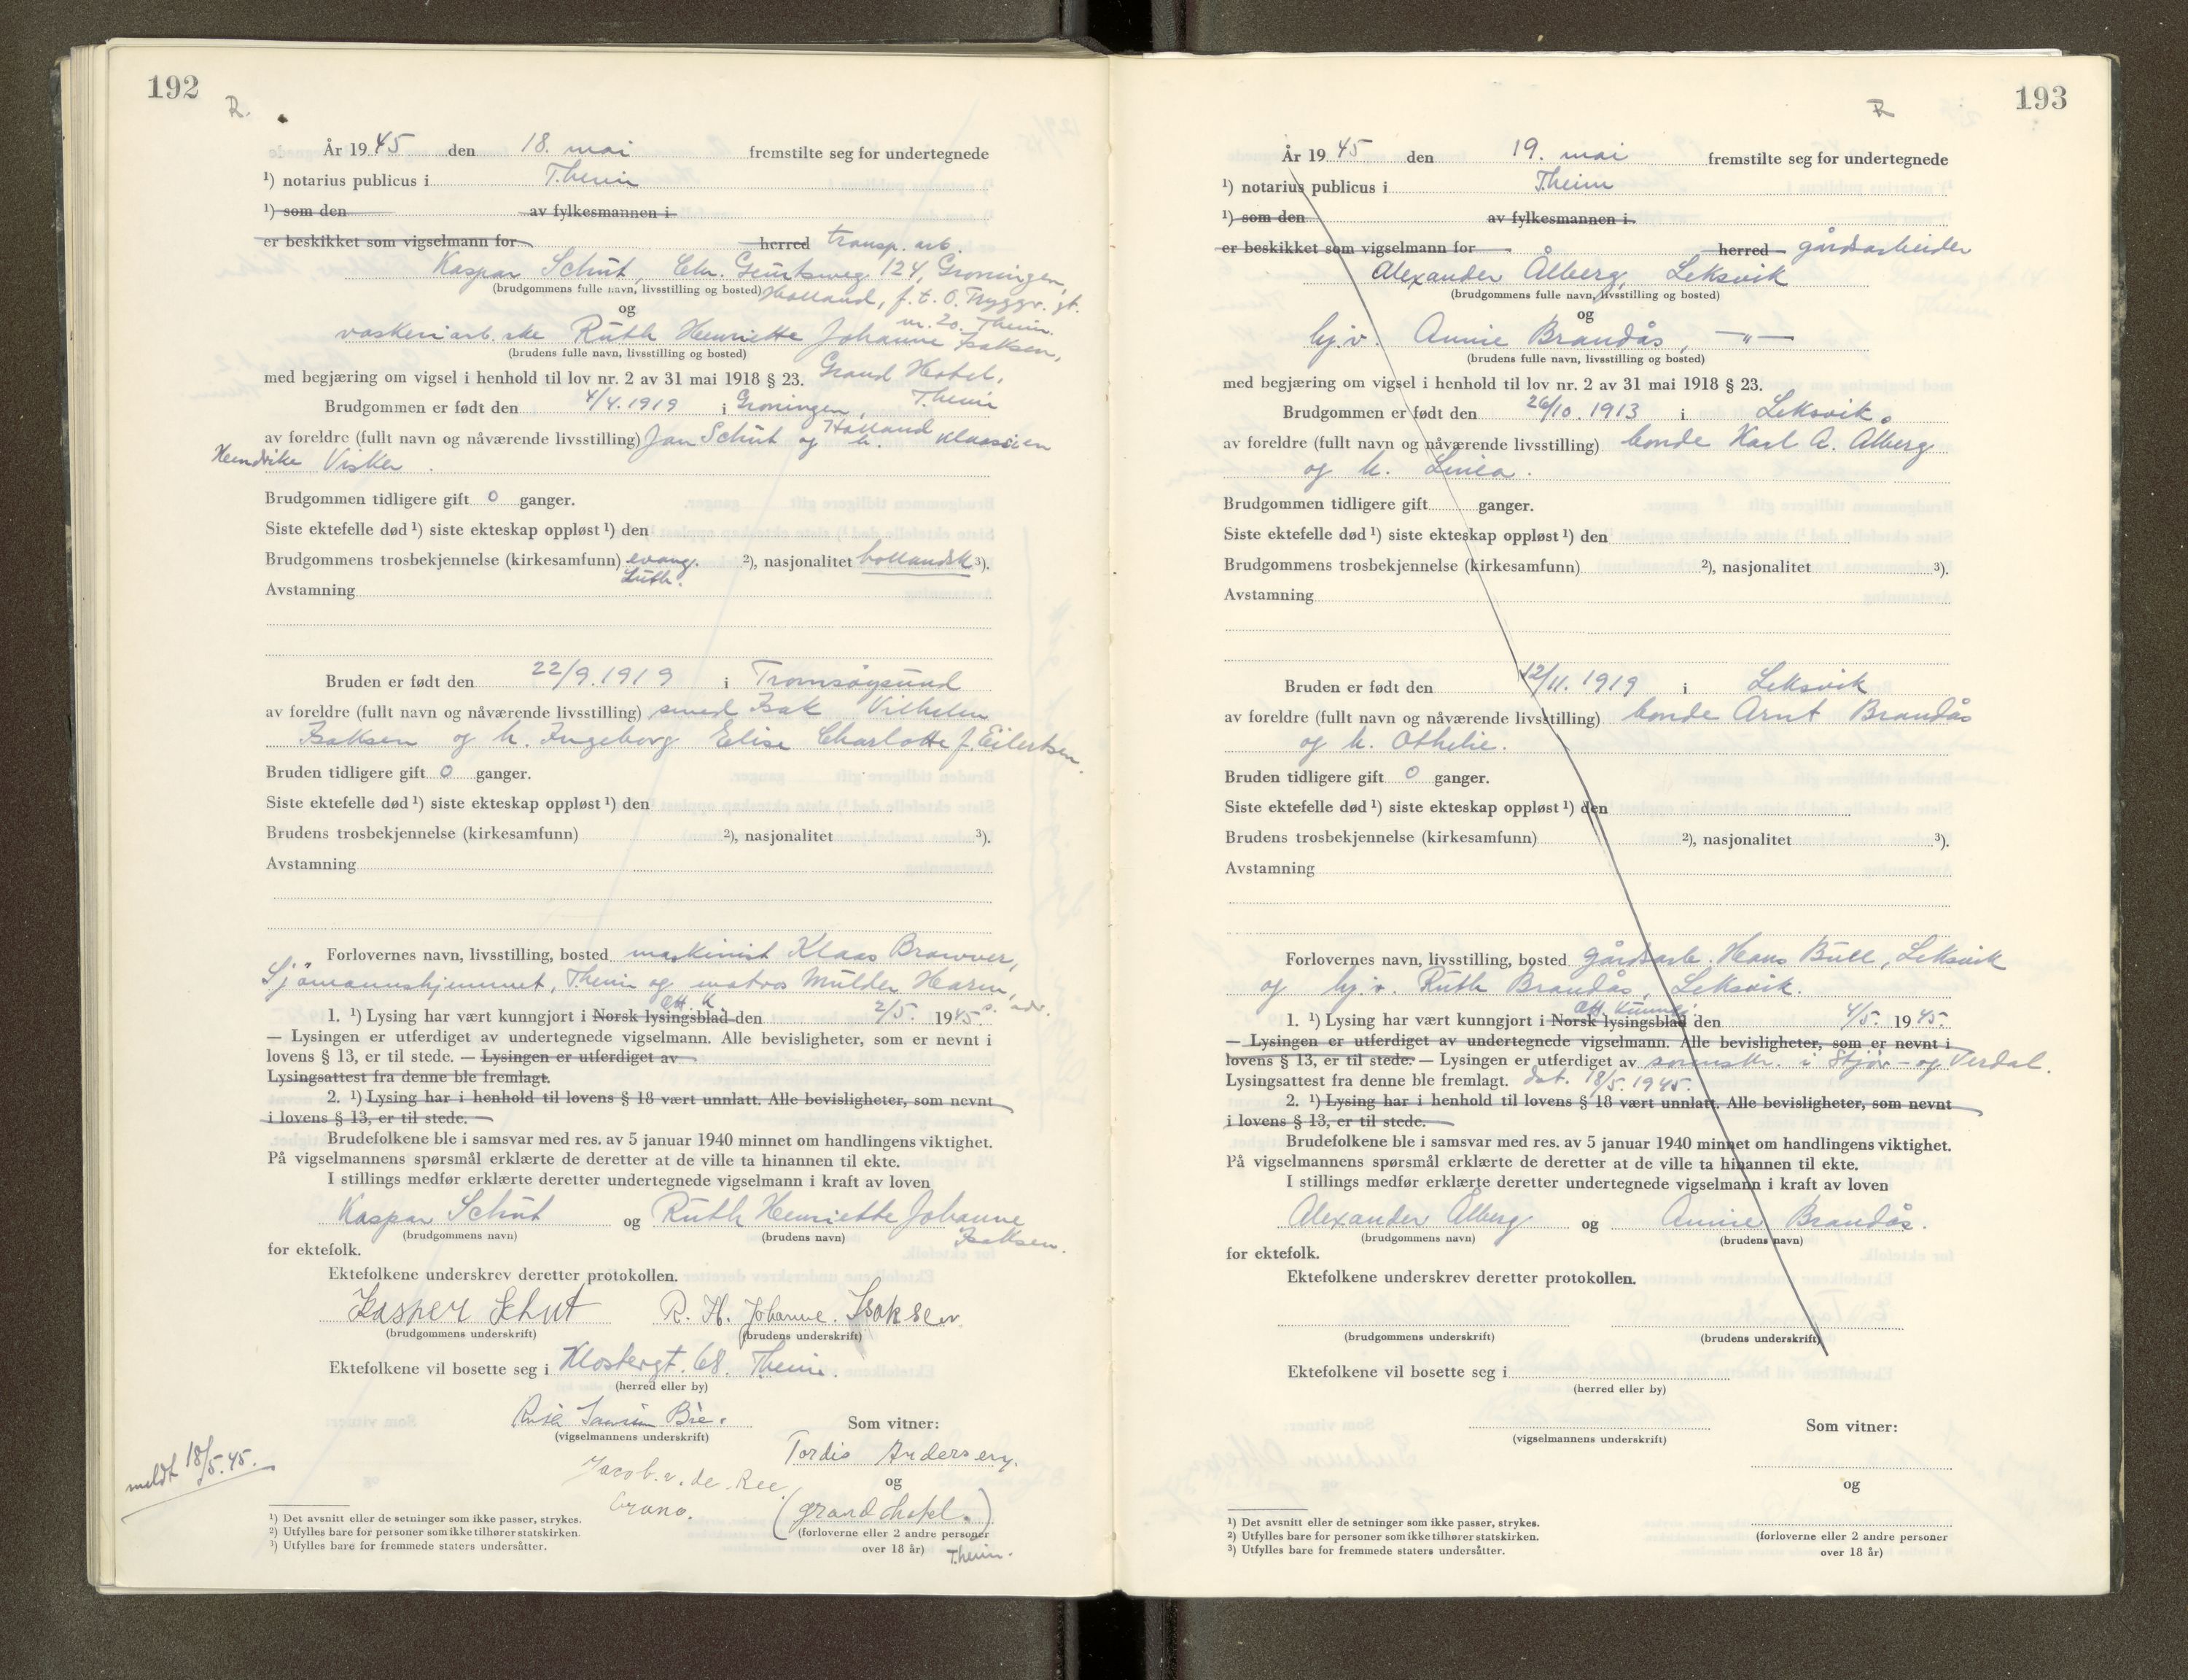 192
R.
År 1945 den 18. mai fremstilte seg for undertegnede
¹) notarius publicus i T.heim
¹) som den av fylkesmannen i
er beskikket som vigselmann for herred transp. arb.
Kaspar Schut, Chr. 124, Groningen,
(brudgommens fulle navn, livsstilling og bosted) Holland, f. t. O. Tryggv. gt.
og nr. 20. Theim.
vaskeriarb.ske Ruth Henriette Johanne Isaksen,
(brudens fulle navn, livsstilling og bosted)
med begjæring om vigsel i henhold til lov nr. 2 av 31 mai 1918 § 23. Grand Hotel,
T.heim
Brudgommen er født den 4/4. 1919 i Groningen,
Holland
av foreldre (fullt navn og nåværende livsstilling) Jan Schut og h. Klaassien
Hendrike Visker.
Brudgommen tidligere gift 0 ganger.
Siste ektefelle død ¹) siste ekteskap oppløst ¹) den
Brudgommens trosbekjennelse (kirkesamfunn) evang. ²), nasjonalitet hollandsk ³).
Luth.
Avstamning
Bruden er født den 22/9. 1919 i Tromsøysund
av foreldre (fullt navn og nåværende livsstilling) smed Isak Vilhelm
Isaksen og h. Ingeborg Elise Charlotte f. Eilertsen.
Bruden tidligere gift 0 ganger.
Siste ektefelle død ¹) siste ekteskap oppløst ¹) den
Brudens trosbekjennelse (kirkesamfunn) ²), nasjonalitet ³).
Avstamning
Forlovernes navn, livsstilling, bosted maskinist Klaas Brouwer,
Sjömannshjemmet, Theim og matros Mulder Harm,
s. adr.
Off. K.
1. ¹) Lysing har vært kunngjort i Norsk lysingsblad den 2/5. 1945.
— Lysingen er utferdiget av undertegnede vigselmann. Alle bevisligheter, som er nevnt i
lovens § 13, er til stede. — Lysingen er utferdiget av
Lysingsattest fra denne ble fremlagt.
2. ¹) Lysing har i henhold til lovens § 18 vært unnlatt. Alle bevisligheter, som nevnt
i lovens § 13, er til stede.
Brudefolkene ble i samsvar med res. av 5 januar 1940 minnet om handlingens viktighet.
På vigselmannens spørsmål erklærte de deretter at de ville ta hinannen til ekte.
I stillings medfør erklærte deretter undertegnede vigselmann i kraft av loven
Kaspar Schut og Ruth Henriette Johanne
Isaksen.
(brudgommens navn) (brudens navn)
for ektefolk.
Ektefolkene underskrev deretter protokollen.
Kasper Schut R. H. Johanne. Isaksen
(brudgommens underskrift) (brudens underskrift)
Ektefolkene vil bosette seg i Klostergt. 68. Theim.
(herred eller by)
Bie. Som vitner:
(vigselmannens underskrift)
Tordis Andersen.
meldt 18/5.45.
Jacob. v. de. Ree og
Grano. (grand hotel.)
(forloverne eller 2 andre personer
over 18 år) T.heim.
¹) Det avsnitt eller de setninger som ikke passer, strykes.
²) Utfylles bare for personer som ikke tilhører statskirken.
³) Utfylles bare for fremmede staters undersåtter.
193
R
År 1945 den 19. mai fremstilte seg for undertegnede
¹) notarius publicus i T.heim
¹) som den av fylkesmannen i
er beskikket som vigselmann for herred gårdsarbeider
Alexander Ålberg, Leksvik
(brudgommens fulle navn, livsstilling og bosted)
og
hj.v. Annie Brandås, —"—
(brudens fulle navn, livsstilling og bosted)
med begjæring om vigsel i henhold til lov nr. 2 av 31 mai 1918 § 23.
Brudgommen er født den 26/10. 1913 i Leksvik.
av foreldre (fullt navn og nåværende livsstilling) bonde Karl A. Ålberg
og h. Linea.
Brudgommen tidligere gift ganger.
Siste ektefelle død ¹) siste ekteskap oppløst ¹) den
Brudgommens trosbekjennelse (kirkesamfunn) ²), nasjonalitet ³).
Avstamning
Bruden er født den 12/11. 1919 i Leksvik
av foreldre (fullt navn og nåværende livsstilling) bonde Arnt Brandås
og h. Othelie.
Bruden tidligere gift 0 ganger.
Siste ektefelle død ¹) siste ekteskap oppløst ¹) den
Brudens trosbekjennelse (kirkesamfunn) ²), nasjonalitet ³).
Avstamning
Forlovernes navn, livsstilling, bosted gårdsarb. Hans Bull, Leksvik
og hj.v. Ruth Brandås, Leksvik.
Off. Kunngj.
1. ¹) Lysing har vært kunngjort i Norsk lysingsblad den 4/5. 1945.
— Lysingen er utferdiget av undertegnede vigselmann. Alle bevisligheter, som er nevnt i
lovens § 13, er til stede. — Lysingen er utferdiget av sorenskr. i Stjør- og Verdal.
Lysingsattest fra denne ble fremlagt. dat. 18/5. 1945.
2. ¹) Lysing har i henhold til lovens § 18 vært unnlatt. Alle bevisligheter, som nevnt
i lovens § 13, er til stede.
Brudefolkene ble i samsvar med res. av 5 januar 1940 minnet om handlingens viktighet.
På vigselmannens spørsmål erklærte de deretter at de ville ta hinannen til ekte.
I stillings medfør erklærte deretter undertegnede vigselmann i kraft av loven
Alexander Ålberg og Annie Brandås.
(brudgommens navn) (brudens navn)
for ektefolk.
Ektefolkene underskrev deretter protokollen.
(brudgommens underskrift) (brudens underskrift)
Ektefolkene vil bosette seg i
(herred eller by)
Som vitner:
(vigselmannens underskrift)
og
(forloverne eller 2 andre personer
over 18 år)
¹) Det avsnitt eller de setninger som ikke passer, strykes.
²) Utfylles bare for personer som ikke tilhører statskirken.
³) Utfylles bare for fremmede staters undersåtter.